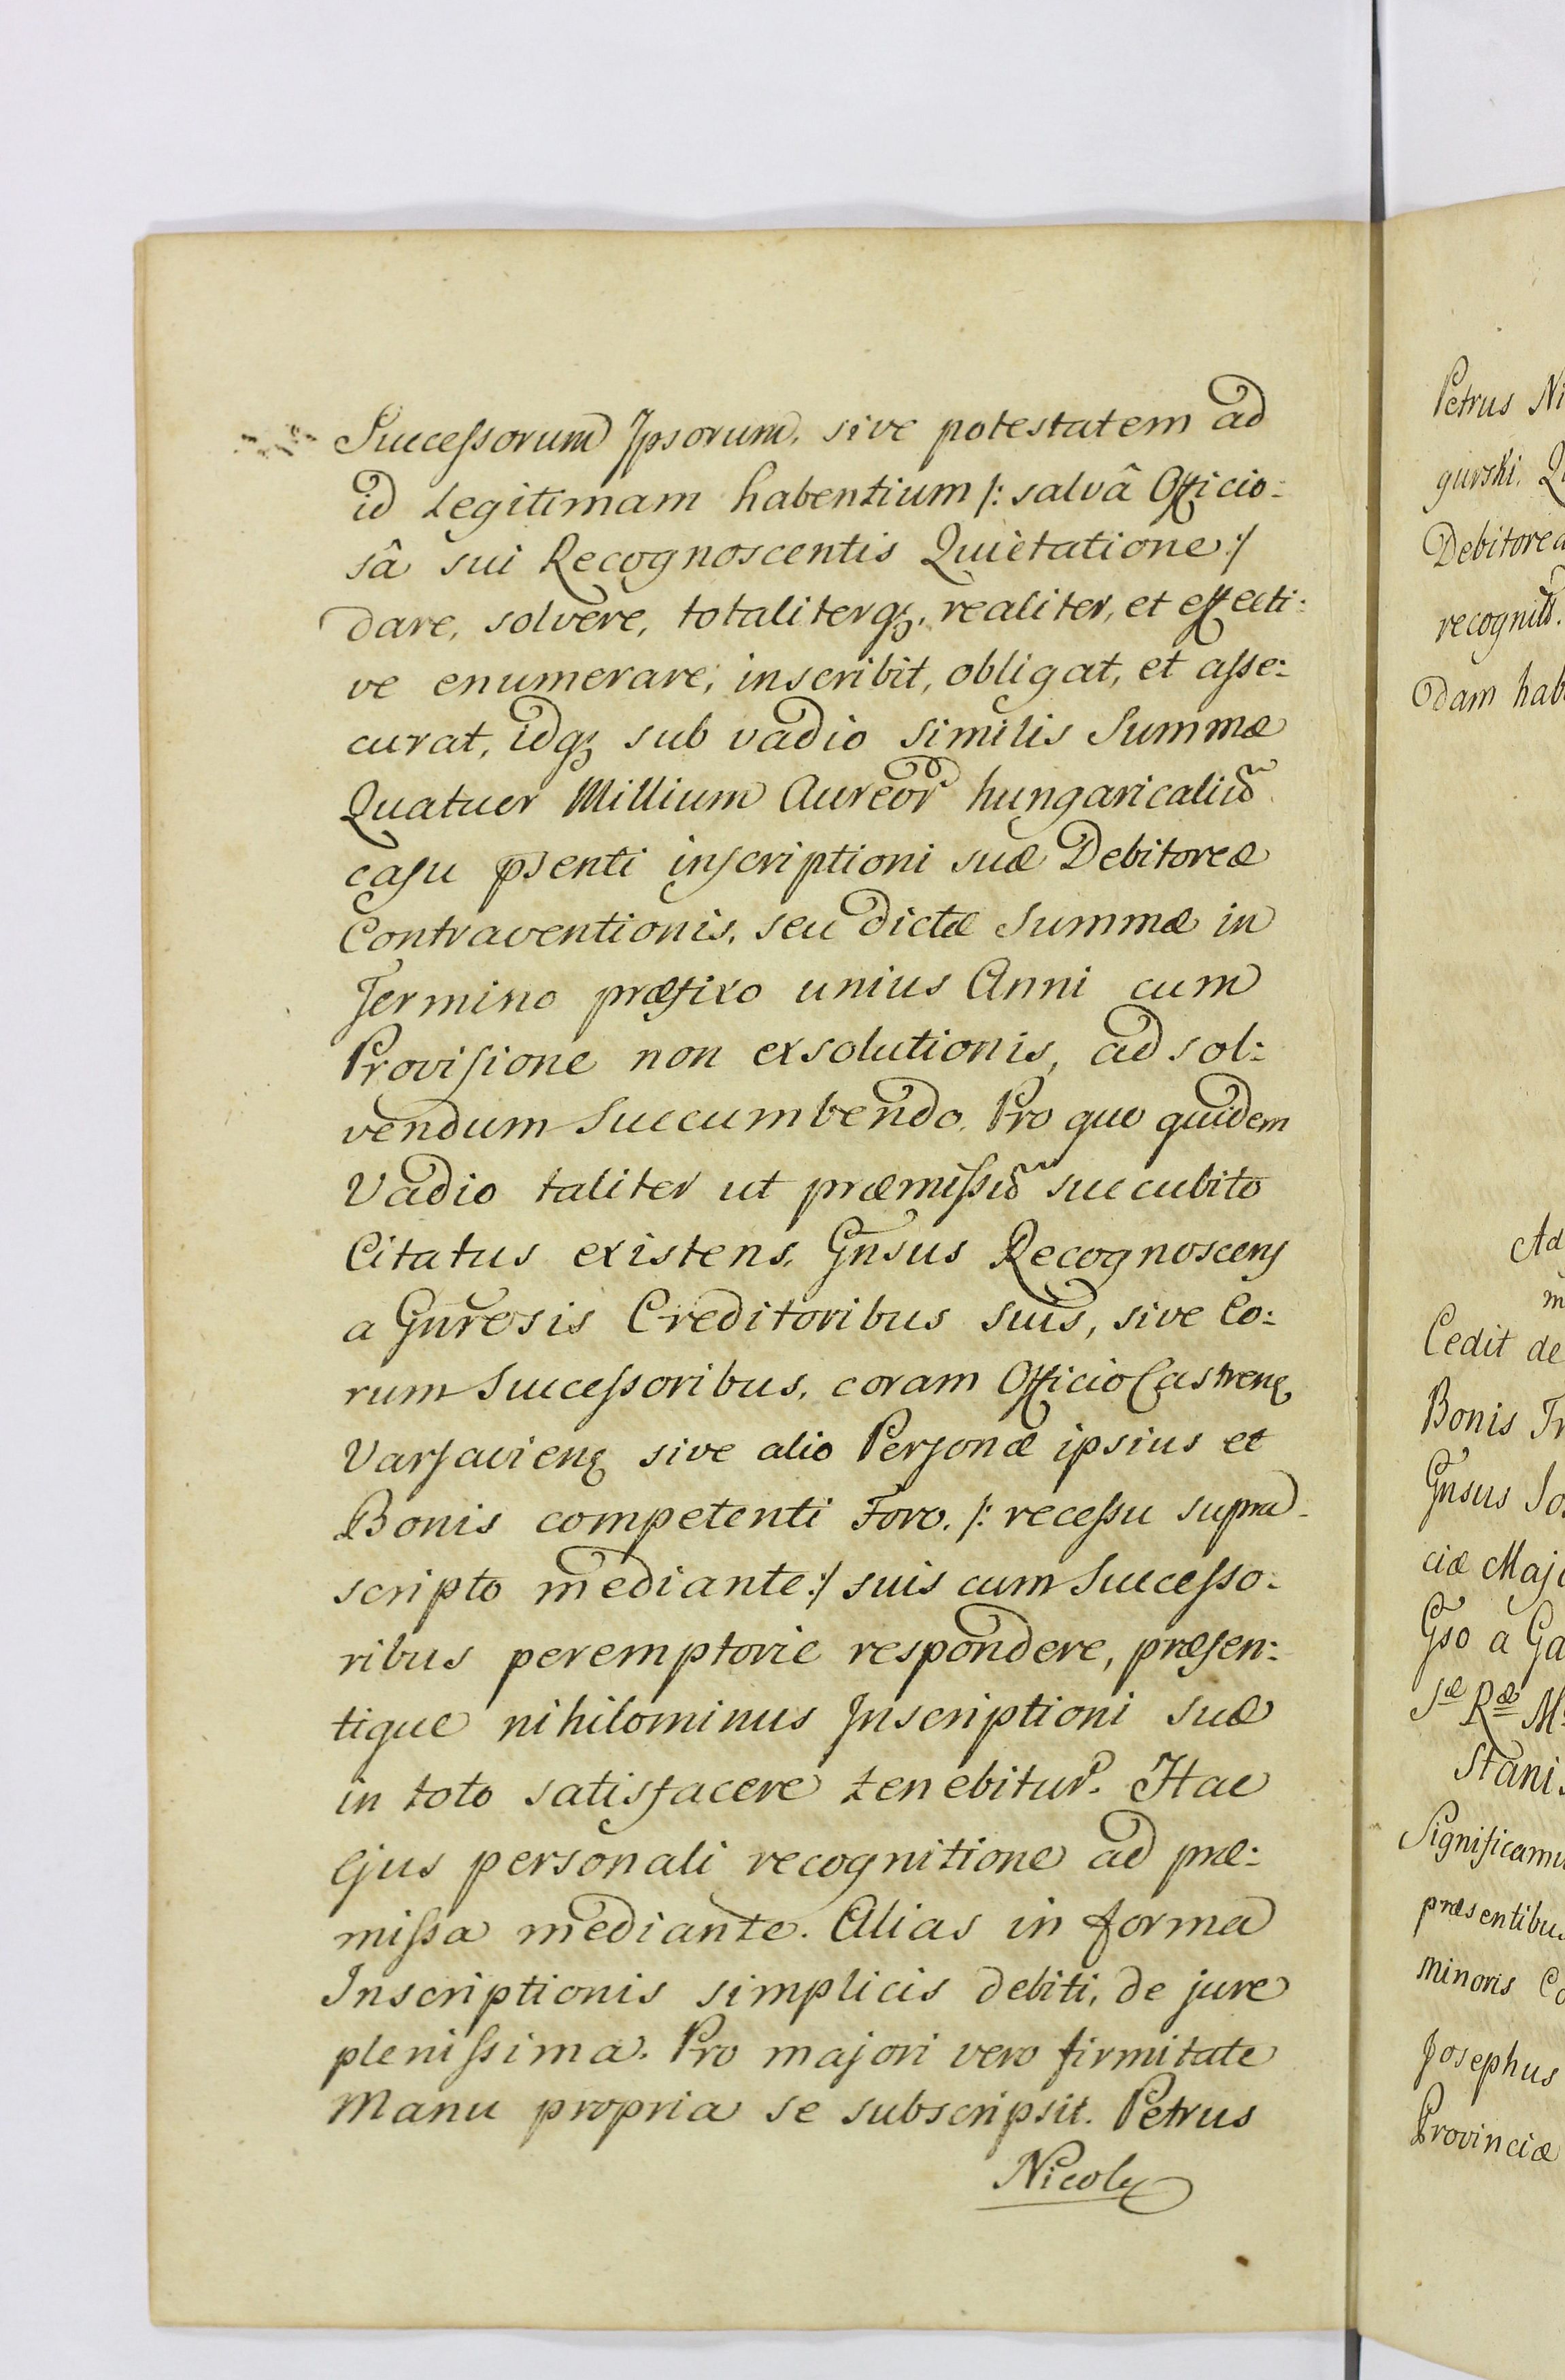 Successorum Ipsorum, sive potestatem ad
id Legitimam habentium /: salvâ Officio:
sâ sui Recognoscentis Quietatione :/
dare, solvere, totaliterq₃, realiter, et effecti:
ve enumerare, inscribit, obligat, et asse:
curat, idq₃ sub vadio similis Summæ
Quatuor Millium Aureor̃ hungaricaliũ
casu p̄senti inscriptioni suæ Debitoreæ
Contraventionis, seu dictæ Summæ in
Termino præfixo unius Anni cum
Provisione non exsolutionis, ad sol:
vendum Succumbendo. Pro quo quidem
Vadio taliter ut præmissũ succubito
Citatus existens, Gñsus Recognoscens
a Gñrosis Creditoribus suis, sive Eo:
rum Successoribus, coram Officio Castrenſ
Varsavienſ sive alio Personæ ipsius et
Bonis competenti Foro. /: recessu supra
scripto mediante :/ suis cum Successo:
ribus peremptorie respondere, præsen:
tique nihilominus Inscriptioni suæ
in toto satisfacere tenebitur. Hac
ejus personali recognitione ad præ:
missa mediante. Alias in forma
Inscriptionis simplicis debiti, de jure
plenissima. Pro majori vero firmitate
Manu propria se subscripsit. Petrus
Nicol
Petrus Ni
gurski. Q
Debitorea
recognit̃.
dam hab
Ad
m
Cedit de
Bonis Tr
Gñsus Jo
ciæ Majo
Gso a Ga
Sæ Ræ M
Stani
Significamu
præsentibus
minoris Co
Josephus
Provinciæ